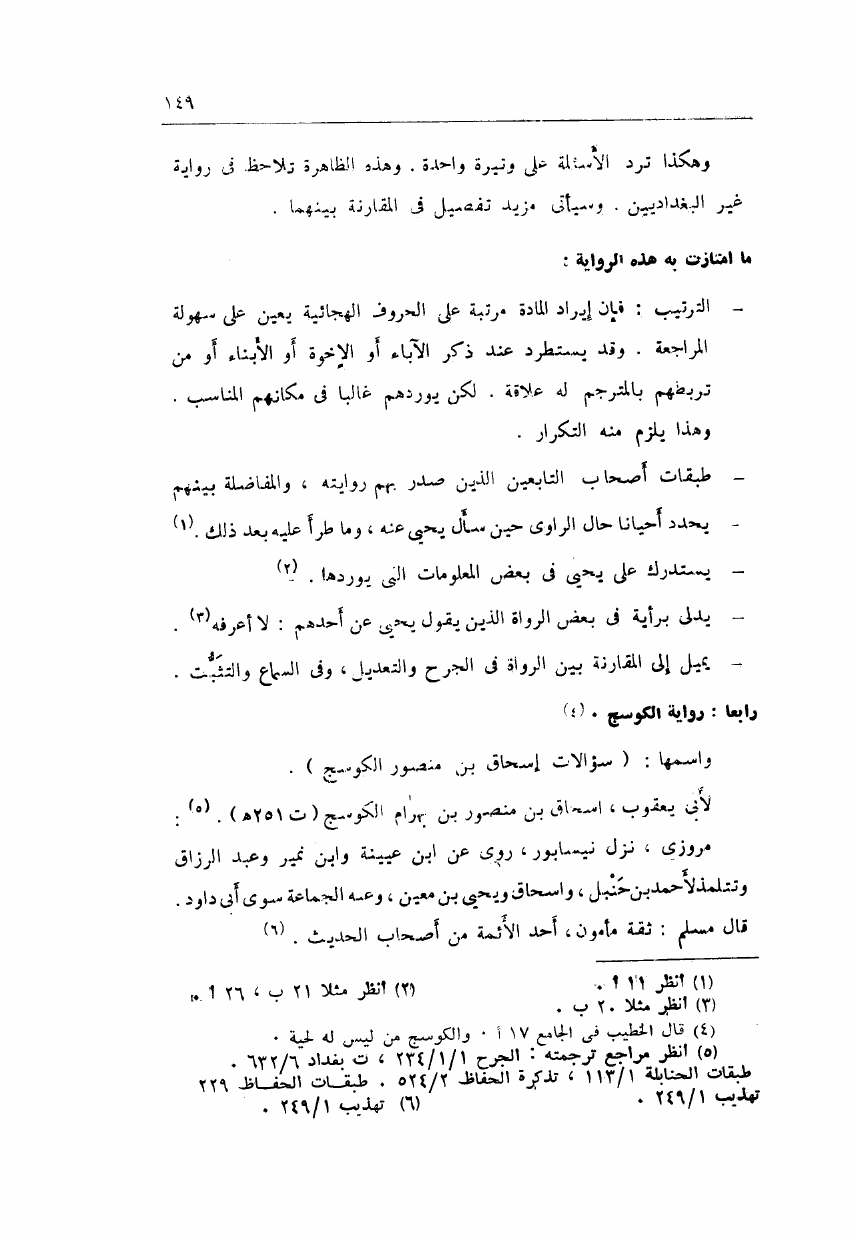 ١٤٩
وهكذا ترد الأسئلة على وتيرة واحدة . وهذه الظاهرة تلاحظ فى رواية
غير البغداديين . وسيأتى مزيد تفصيل فى المقارنة بينهما .
ما امتازت به هذه الرواية :
– الترتيب : فإن إيراد المادة مرتبة على الحروف الهجائية يعين على سهولة
المراجعة . وقد يستطرد عند ذكر الآباء أو الإخوة أو الأبناء أو من
تربطهم بالمترجم له علاقة . لكن يوردهم غالبا فى مكانهم المناسب .
وهذا يلزم منه التكرار .
– طبقات أصحاب التابعين الذين صدر بهم روايته ، والمفاضلة بينهم
– يحدد أحيانا حال الراوى حين سأل يحيى عنه ، وما طرأ عليه بعد ذلك .(١)
– يستدرك على يحيى فى بعض المعلومات التى يوردها . (٢)
– يدلى برأية فى بعض الرواة الذين يقول يحيى عن أحدهم : لا أعرفه(٣) .
– يميل إلى المقارنة بين الرواة فى الجرح والتعديل ، وفى السماع والتثَبُّت .
رابعا : رواية الكوسج . (٤)
واسمها : ( سؤالات إسحاق بن منصور الكوسج ) .
لأبى يعقوب ، اسحاق بن منصور بن بهرام الكوسج ( ت ٢٥١ه ) . (٥) :
مروزى ، نزل نيسابور ، روى عن ابن عيينة وابن نمير وعبد الرزاق
وتتلمذ لأحمد بن حَنْبل ، واسحاق ويحيى بن معين ، وعنه الجماعة سوى أبى داود .
قال مسلم : ثقة مأمون ، أحد الأئمة من أصحاب الحديث . (٦)
(١) انظر ١١ أ .
(٢) انظر مثلا ٢١ ب ، ٢٦ أ .
(٣) انظر مثلا ٢٠ ب .
(٤) قال الخطيب فى الجامع ١٧ أ . والكوسج من ليس له لحية .
(٥) انظر مراجع ترجمته : الجرح ٢٣٤/١/١ ، ت بغداد ٦٣٢/٦ .
طبقات الحنابلة ١١٣/١ ، تذكرة الحفاظ ٥٢٤/٢ . طبقات الحفاظ ٢٢٩
تهذيب ٢٤٩/١ .
(٦) تهذيب ٢٤٩/١ .